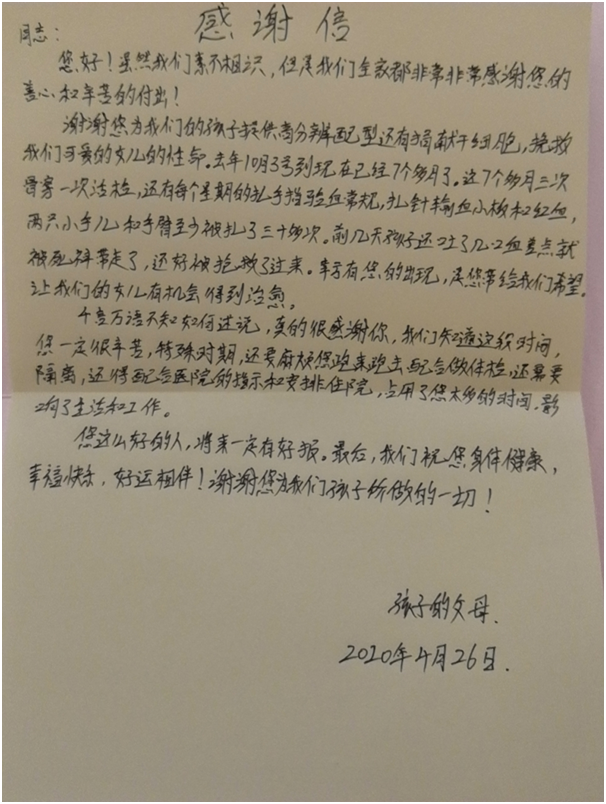 感谢信
同志：
您好！虽然我们素不相识，但是我们全家都非常非常感谢您的
善心和辛苦的付出！
谢谢您为我们的孩子提供高分辨配型还有捐献干细胞，挽救
我们可爱的女儿的性命。去年10月3号到现在已经7个多月了。这7个多月三次
骨穿一次活检，还有每个星期的扎手指验血常规，扎针输血小板和红血，
两只小手儿和手臂至少被扎了三十多次。前几天孩子还吐了几口血差点就
被死神带走了，还好被抢救了过来。幸亏有您的出现，是您带给我们希望。
让我们的女儿有机会得到治愈。
千言万语不知如何述说，真的很感谢你，我们知道这段时间，
您一定很辛苦，特殊时期，还要麻烦您跑来跑去配合做体检，还需要
隔离，还得配合医院的指示和安排住院，占用了您太多的时间，影
响了生活和工作。
您这么好的人，将来一定有好报。最后，我们祝您身体健康，
幸福快乐，好运相伴！谢谢您为我们孩子所做的一切！
孩子的父母.
2020年4月26日.